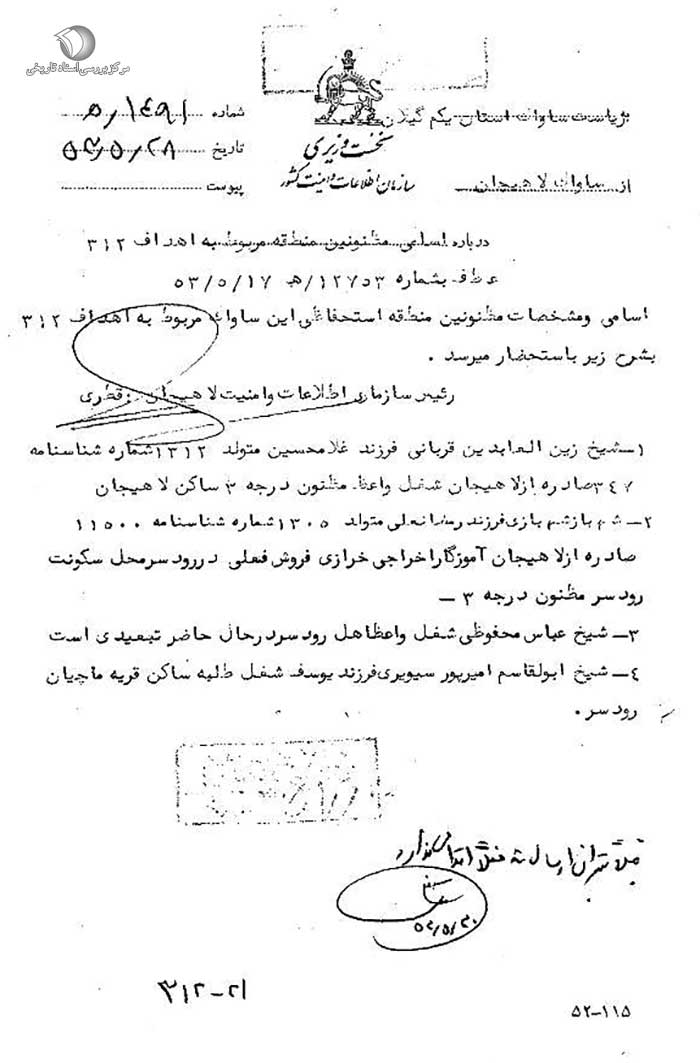 مرکز بررسی اسناد تاریخی
بریاست ساواک استان یکم گیلان
شماره ۱۴۹۱/ه
نخست وزیری
تاریخ ۵۳/۵/۲۸
سازمان اطلاعات و امنیت کشور
از ساواک لاهیجان
پیوست
درباره اسامی مظنونین منطقه مربوط به اهداف ۳۱۲
عطف بشماره ۱۲۷۵۳/ه‍ ۵۳/۵/۱۷
اسامی ومشخصات مظنونین منطقه استحفاظی این ساواک مربوط به اهداف ۳۱۲
بشرح زیر باستحضار میرسد .
رئیس سازمان اطلاعات وامنیت لاهیجان . قطری
۱ــ شیخ زین العابدین قربانی فرزند غلامحسین متولد ۱۳۱۲ شماره شناسنامه
۳۴۷ صادره ازلاهیجان شغل واعظ مظنون درجه ۳ ساکن لاهیجان
۲ــ بازی فرزند رمضانعلی متولد ۱۳۰۵ شماره شناسنامه ۱۱۵۰۰
صادره ازلاهیجان آموزگار اخراجی خرازی فروش فعلی در رودسر محل سکونت
رودسر مظنون درجه ۳ ــ
۳ــ شیخ عباس محفوظی شغل واعظ اهل رودسر درحال حاضر تبعیدی است
٤ــ شیخ ابوالقاسم امیرپور سیویری فرزند یوسف شغل طلبه ساکن قریه ماچیان
رودسر .
قبلاً بتهران ارسال شد فعلاً اقدامی ندارد
۵۳/۵/۳۰
۳۱۲-۲۱
۵۲-۱۱۵